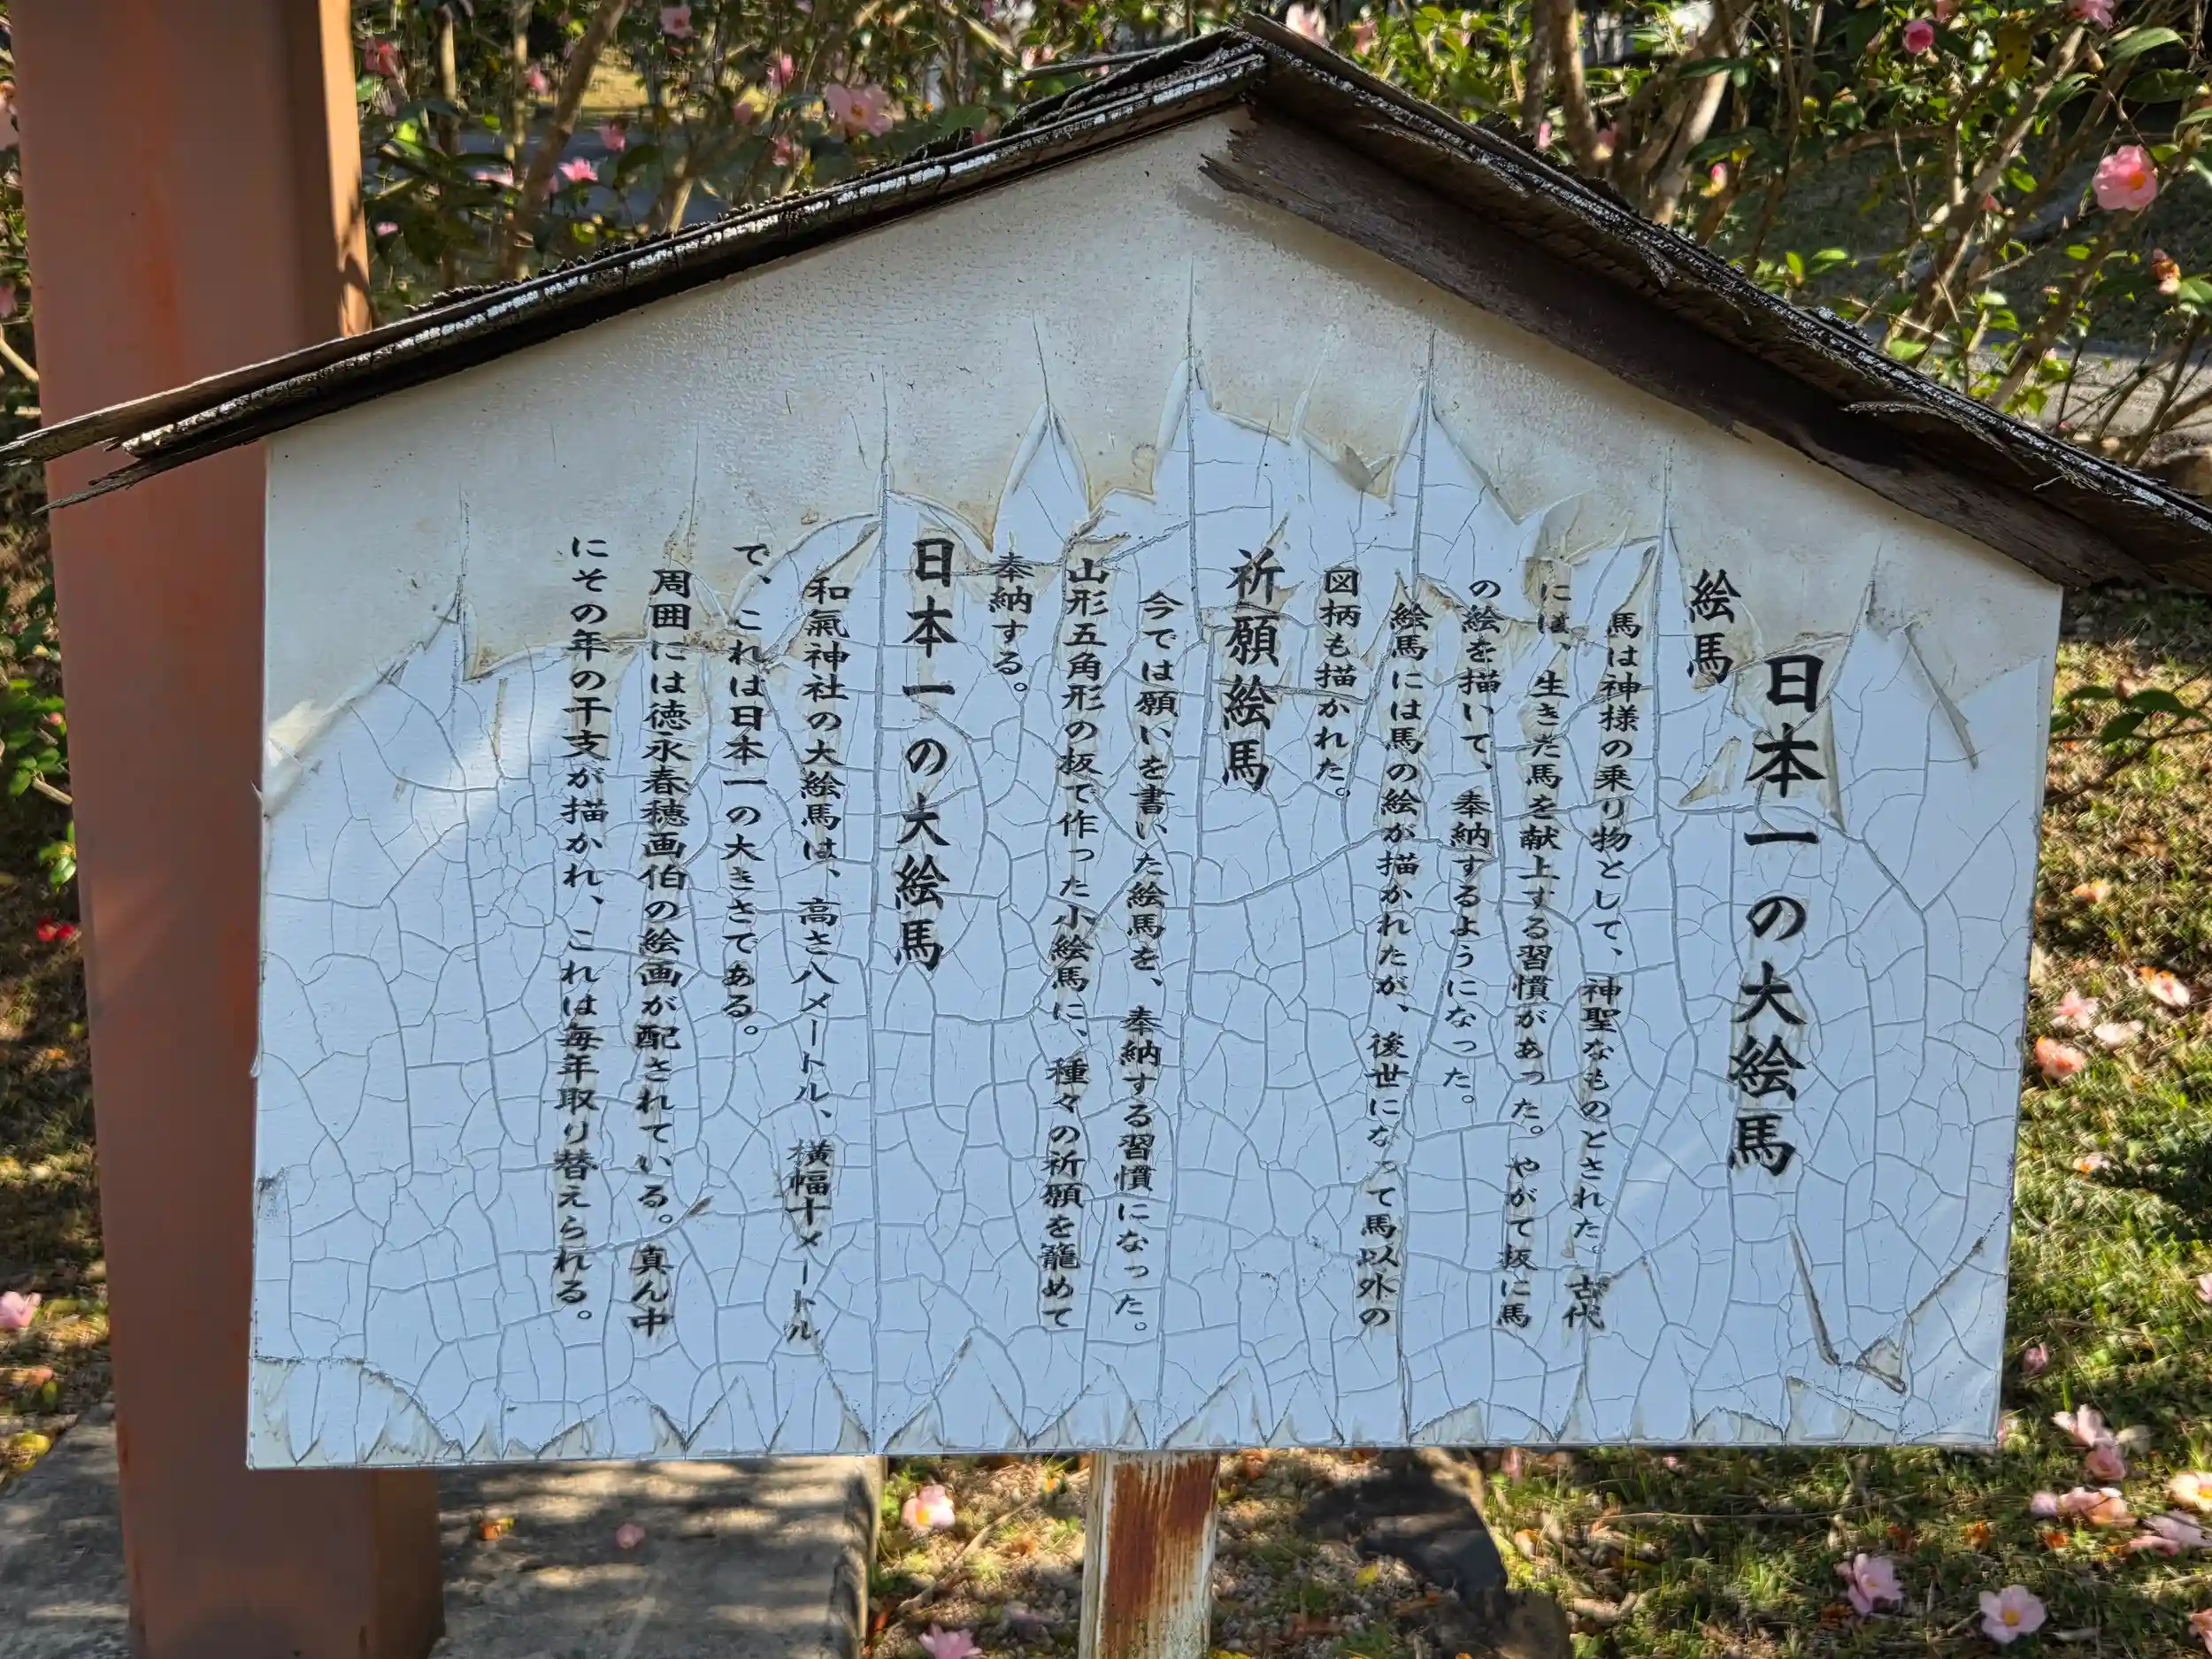 日本一の大絵馬
絵馬
馬は神様の乗り物として、神聖なものとされた。古代
には、生きた馬を献上する習慣があった。やがて板に馬
の絵を描いて、奉納するようになった。
絵馬には馬の絵が描かれたが、後世になって馬以外の
図柄も描かれた。
祈願絵馬
今では願いを書いた絵馬を、奉納する習慣になった。
山形五角形の板で作った小絵馬に、種々の祈願を籠めて
奉納する。
日本一の大絵馬
和氣神社の大絵馬は、高さ八メートル、横幅十メートル
で、これは日本一の大きさである。
周囲には徳永春穂画伯の絵画が配されている。真ん中
にその年の干支が描かれ、これは毎年取り替えられる。